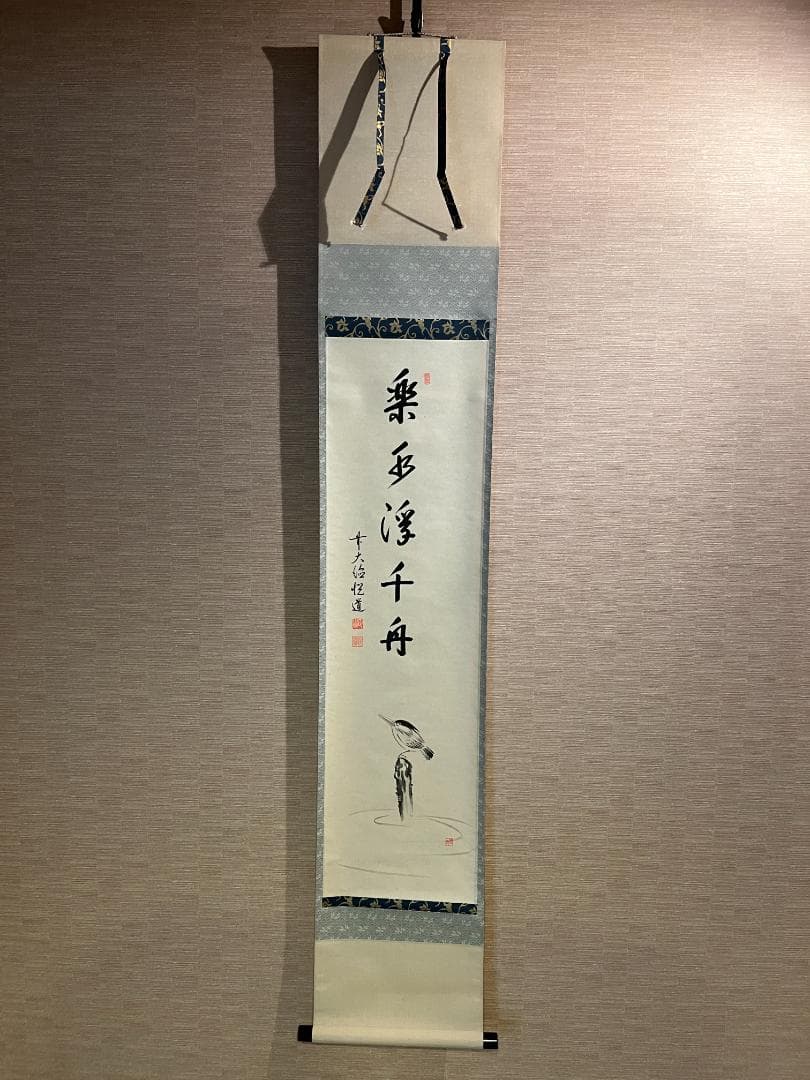 楽水浮千舟
前大徳悦道